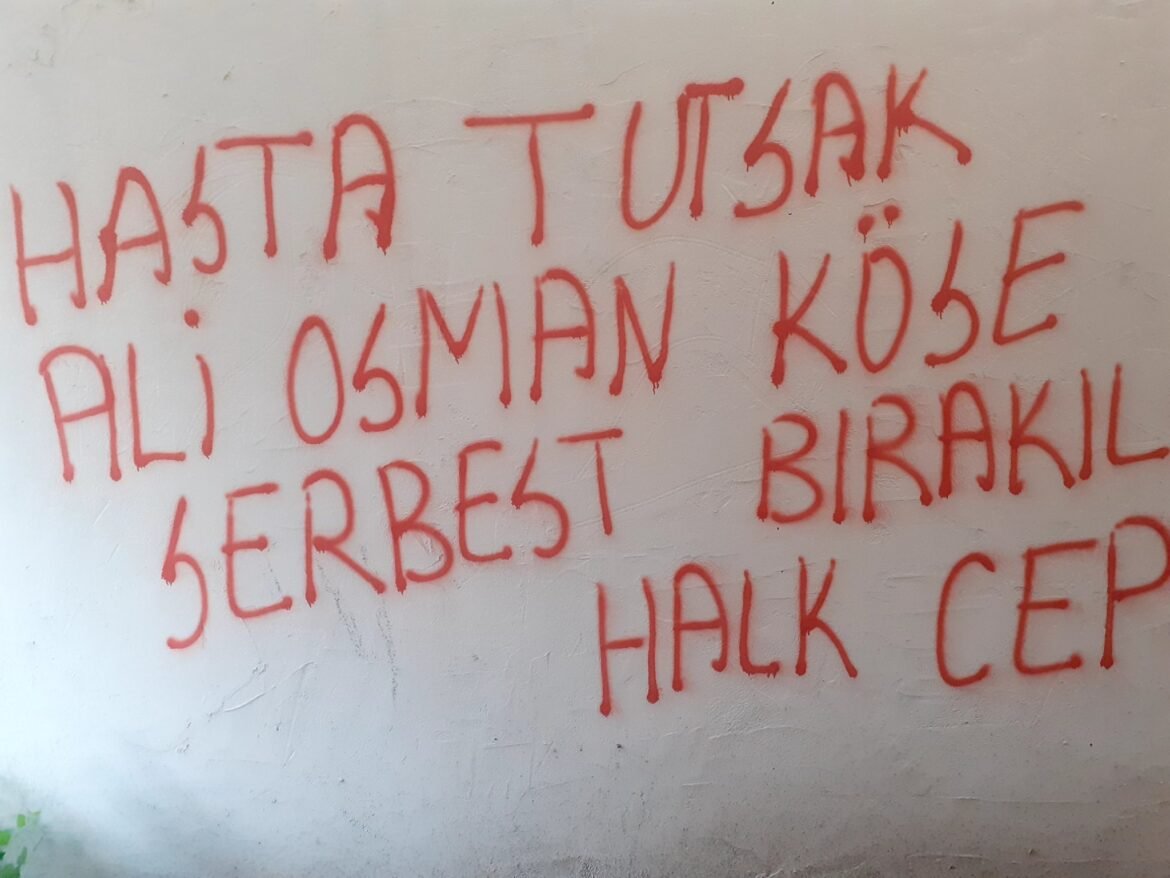 HASTA TUTSAK
ALİ OSMAN KÖSE
SERBEST BIRAKIL
HALK CEP